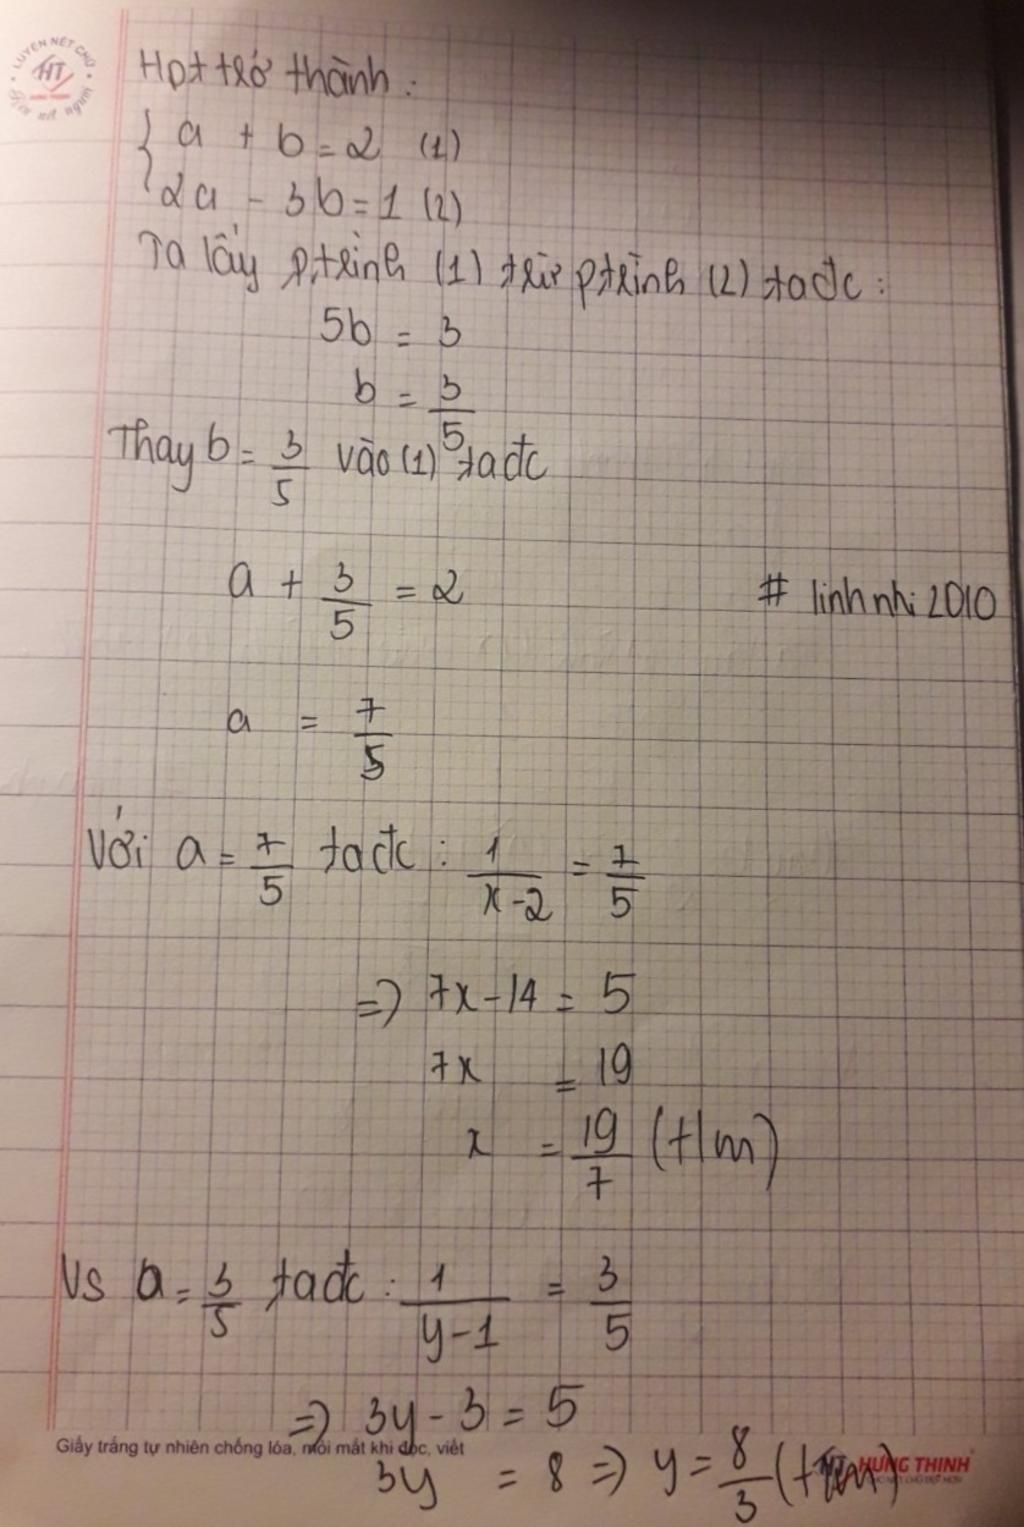 LUYỆN NÉT CHỮ
HT
Rèn nét người
Hpt trở thành :
a + b = 2 (1)
2a - 3b = 1 (2)
Ta lấy ptrình (1) trừ ptrình (2) ta đc :
5b = 3
b = 3/5
Thay b = 3/5 vào (1) ta đc
a + 3/5 = 2
# linhnhi2010
a = 7/5
Với a = 7/5 ta đc : 1/(x-2) = 7/5
=> 7x - 14 = 5
7x = 19
x = 19/7 (t/m)
Vs a = 3/5 ta đc : 1/(y-1) = 3/5
=> 3y - 3 = 5
Giấy trắng tự nhiên chống lóa, mỏi mắt khi đọc, viết
3y = 8 => y = 8/3 (t/m)
HƯNG THỊNH